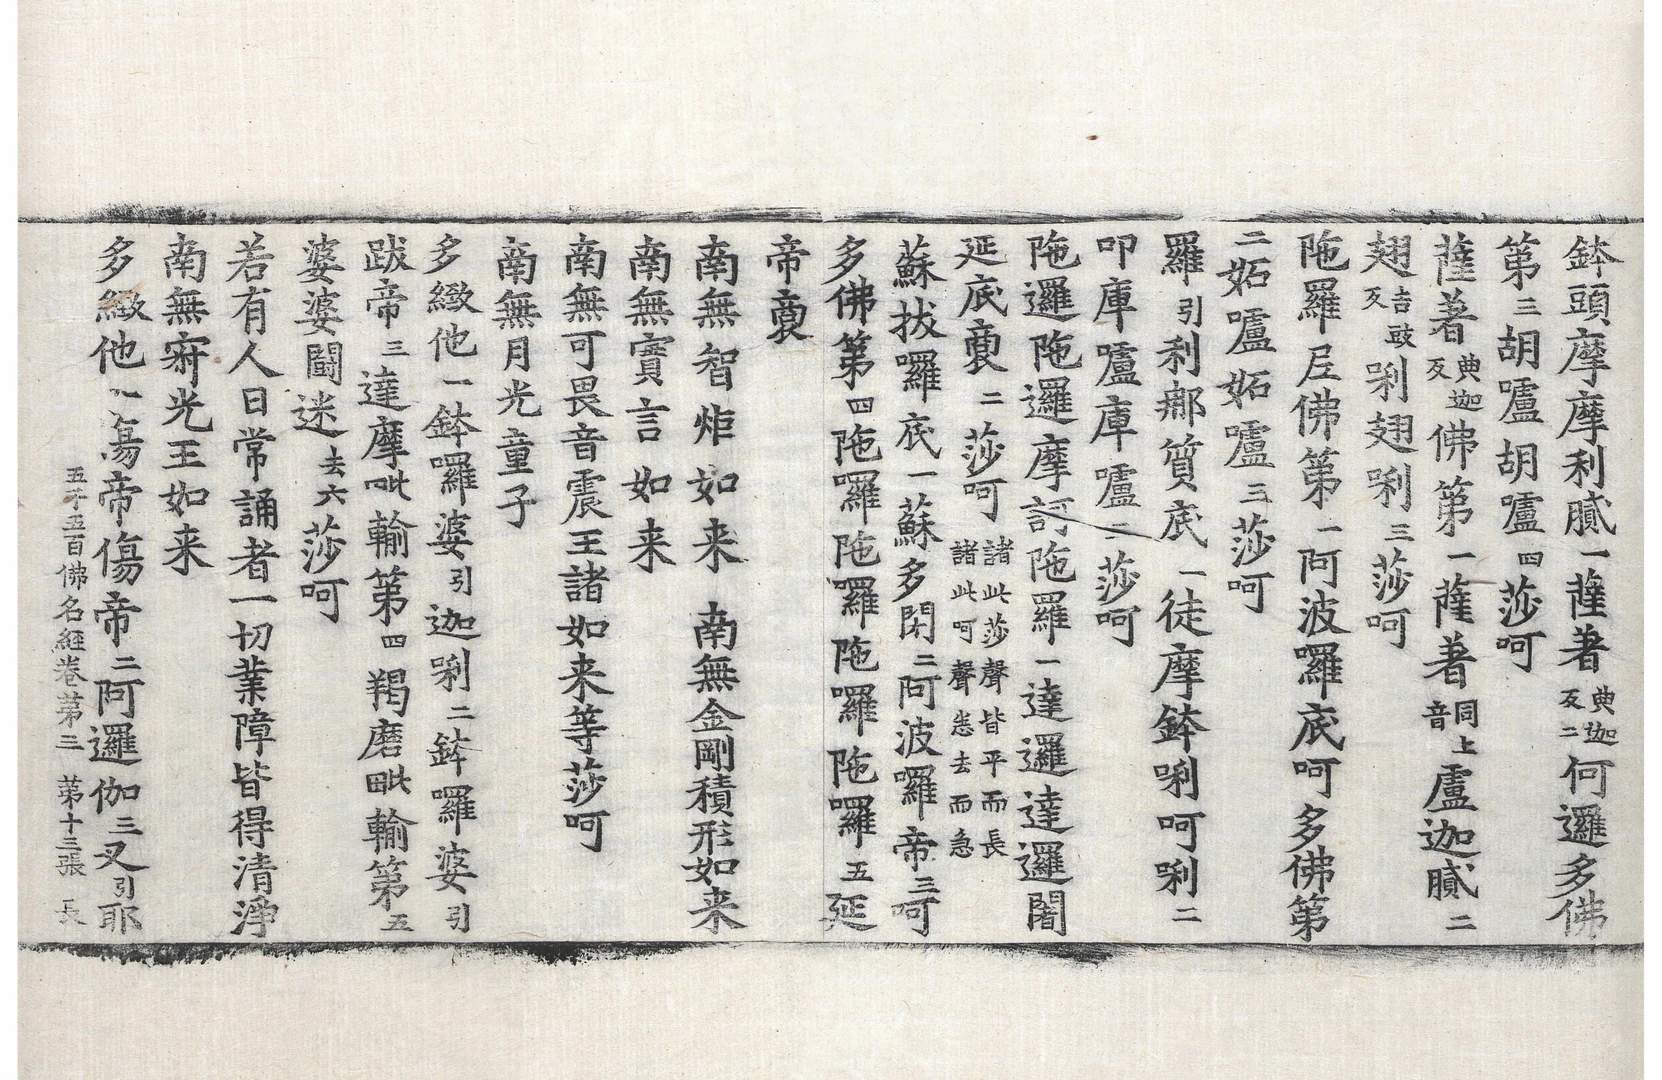 鉢頭摩摩利膩一薩著典迦反二何邏多佛
第三胡嚧胡嚧四莎呵
薩著典迦反佛第一薩著同上音盧迦膩二
翅吉豉反唎翅唎三莎呵
陁羅𡰱佛第一阿波羅底呵多佛第
二妬嚧妬嚧三莎呵
羅引利鄢質底一徒摩鉢唎呵唎二
叩庫嚧庫嚧二莎呵
陁邏陁邏摩訶陁羅一達邏達邏闍
延底裒二莎呵諸此莎聲皆平而長諸此呵聲恙去而急
蘇拔囉底一蘇多閇二阿波囉帝三呵
多佛第四陁囉陁囉陁囉陁囉五延
帝裒
南無智炬如来 南無金剛積形如来
南無實言如来
南無可畏音震王諸如来等莎呵
南無月光童子
多緻他一鉢囉婆引迦唎二鉢囉婆引
跋帝三達摩毗輸第四羯磨毗輸第五
婆婆閫迷去六莎呵
若有人日常誦者一切業障皆得清淨
南無𡨋光王如来
多緻他一傷帝傷帝二阿邏伽三叉引耶
五千五百佛名經卷第二 第十三張 長